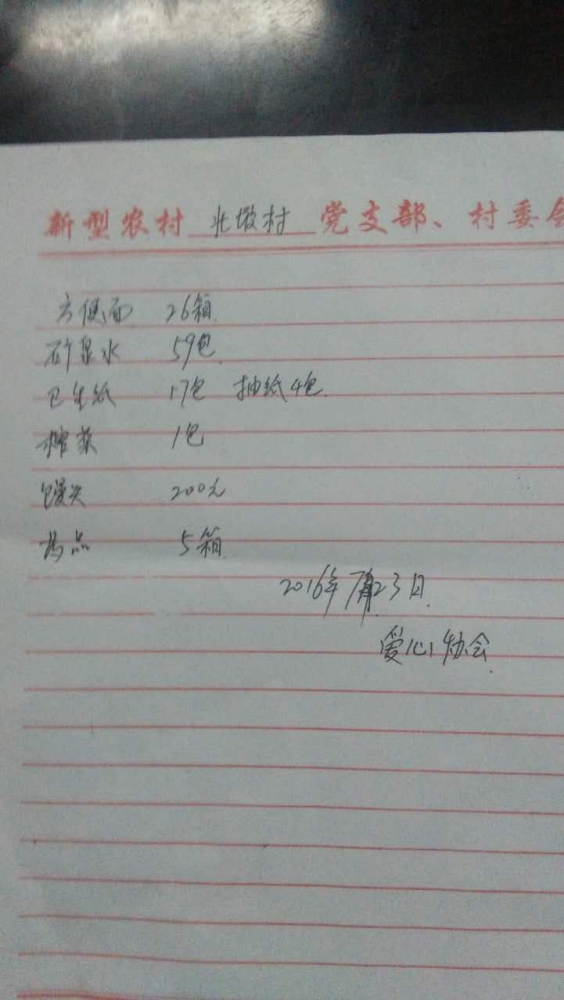 新型农村 北墩村 党支部、村委会
方便面 26箱
矿泉水 59包
卫生纸 17包 抽纸4包
榨菜 1包
馒头 200元
药品 5箱
2016年7月23日
爱心协会